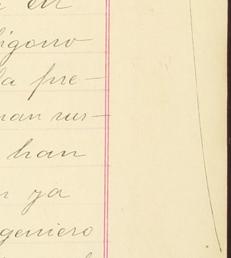 en
ligono
la pre-
nan sus-
han
ya
geniero